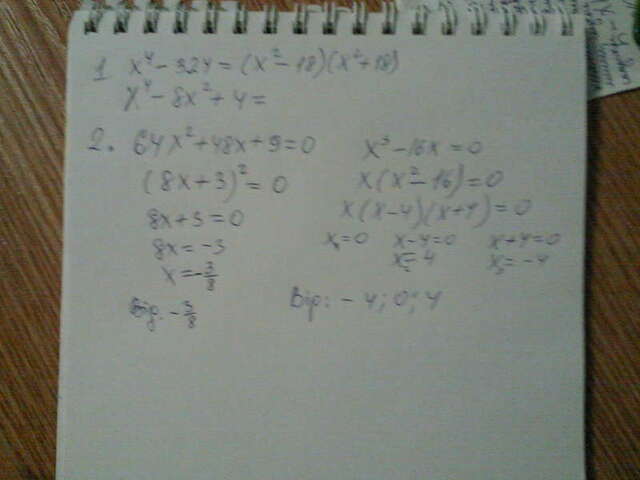 1 x⁴ - 324 = (x² - 18)(x² + 18)
x⁴ - 8x² + 4 =
2. 64x² + 48x + 9 = 0
(8x + 3)² = 0
8x + 3 = 0
8x = -3
x = -3/8
Від. -3/8
x³ - 16x = 0
x(x² - 16) = 0
x(x - 4)(x + 4) = 0
x₁ = 0 x - 4 = 0 x + 4 = 0
x₂ = 4 x₃ = -4
Від: - 4; 0; 4